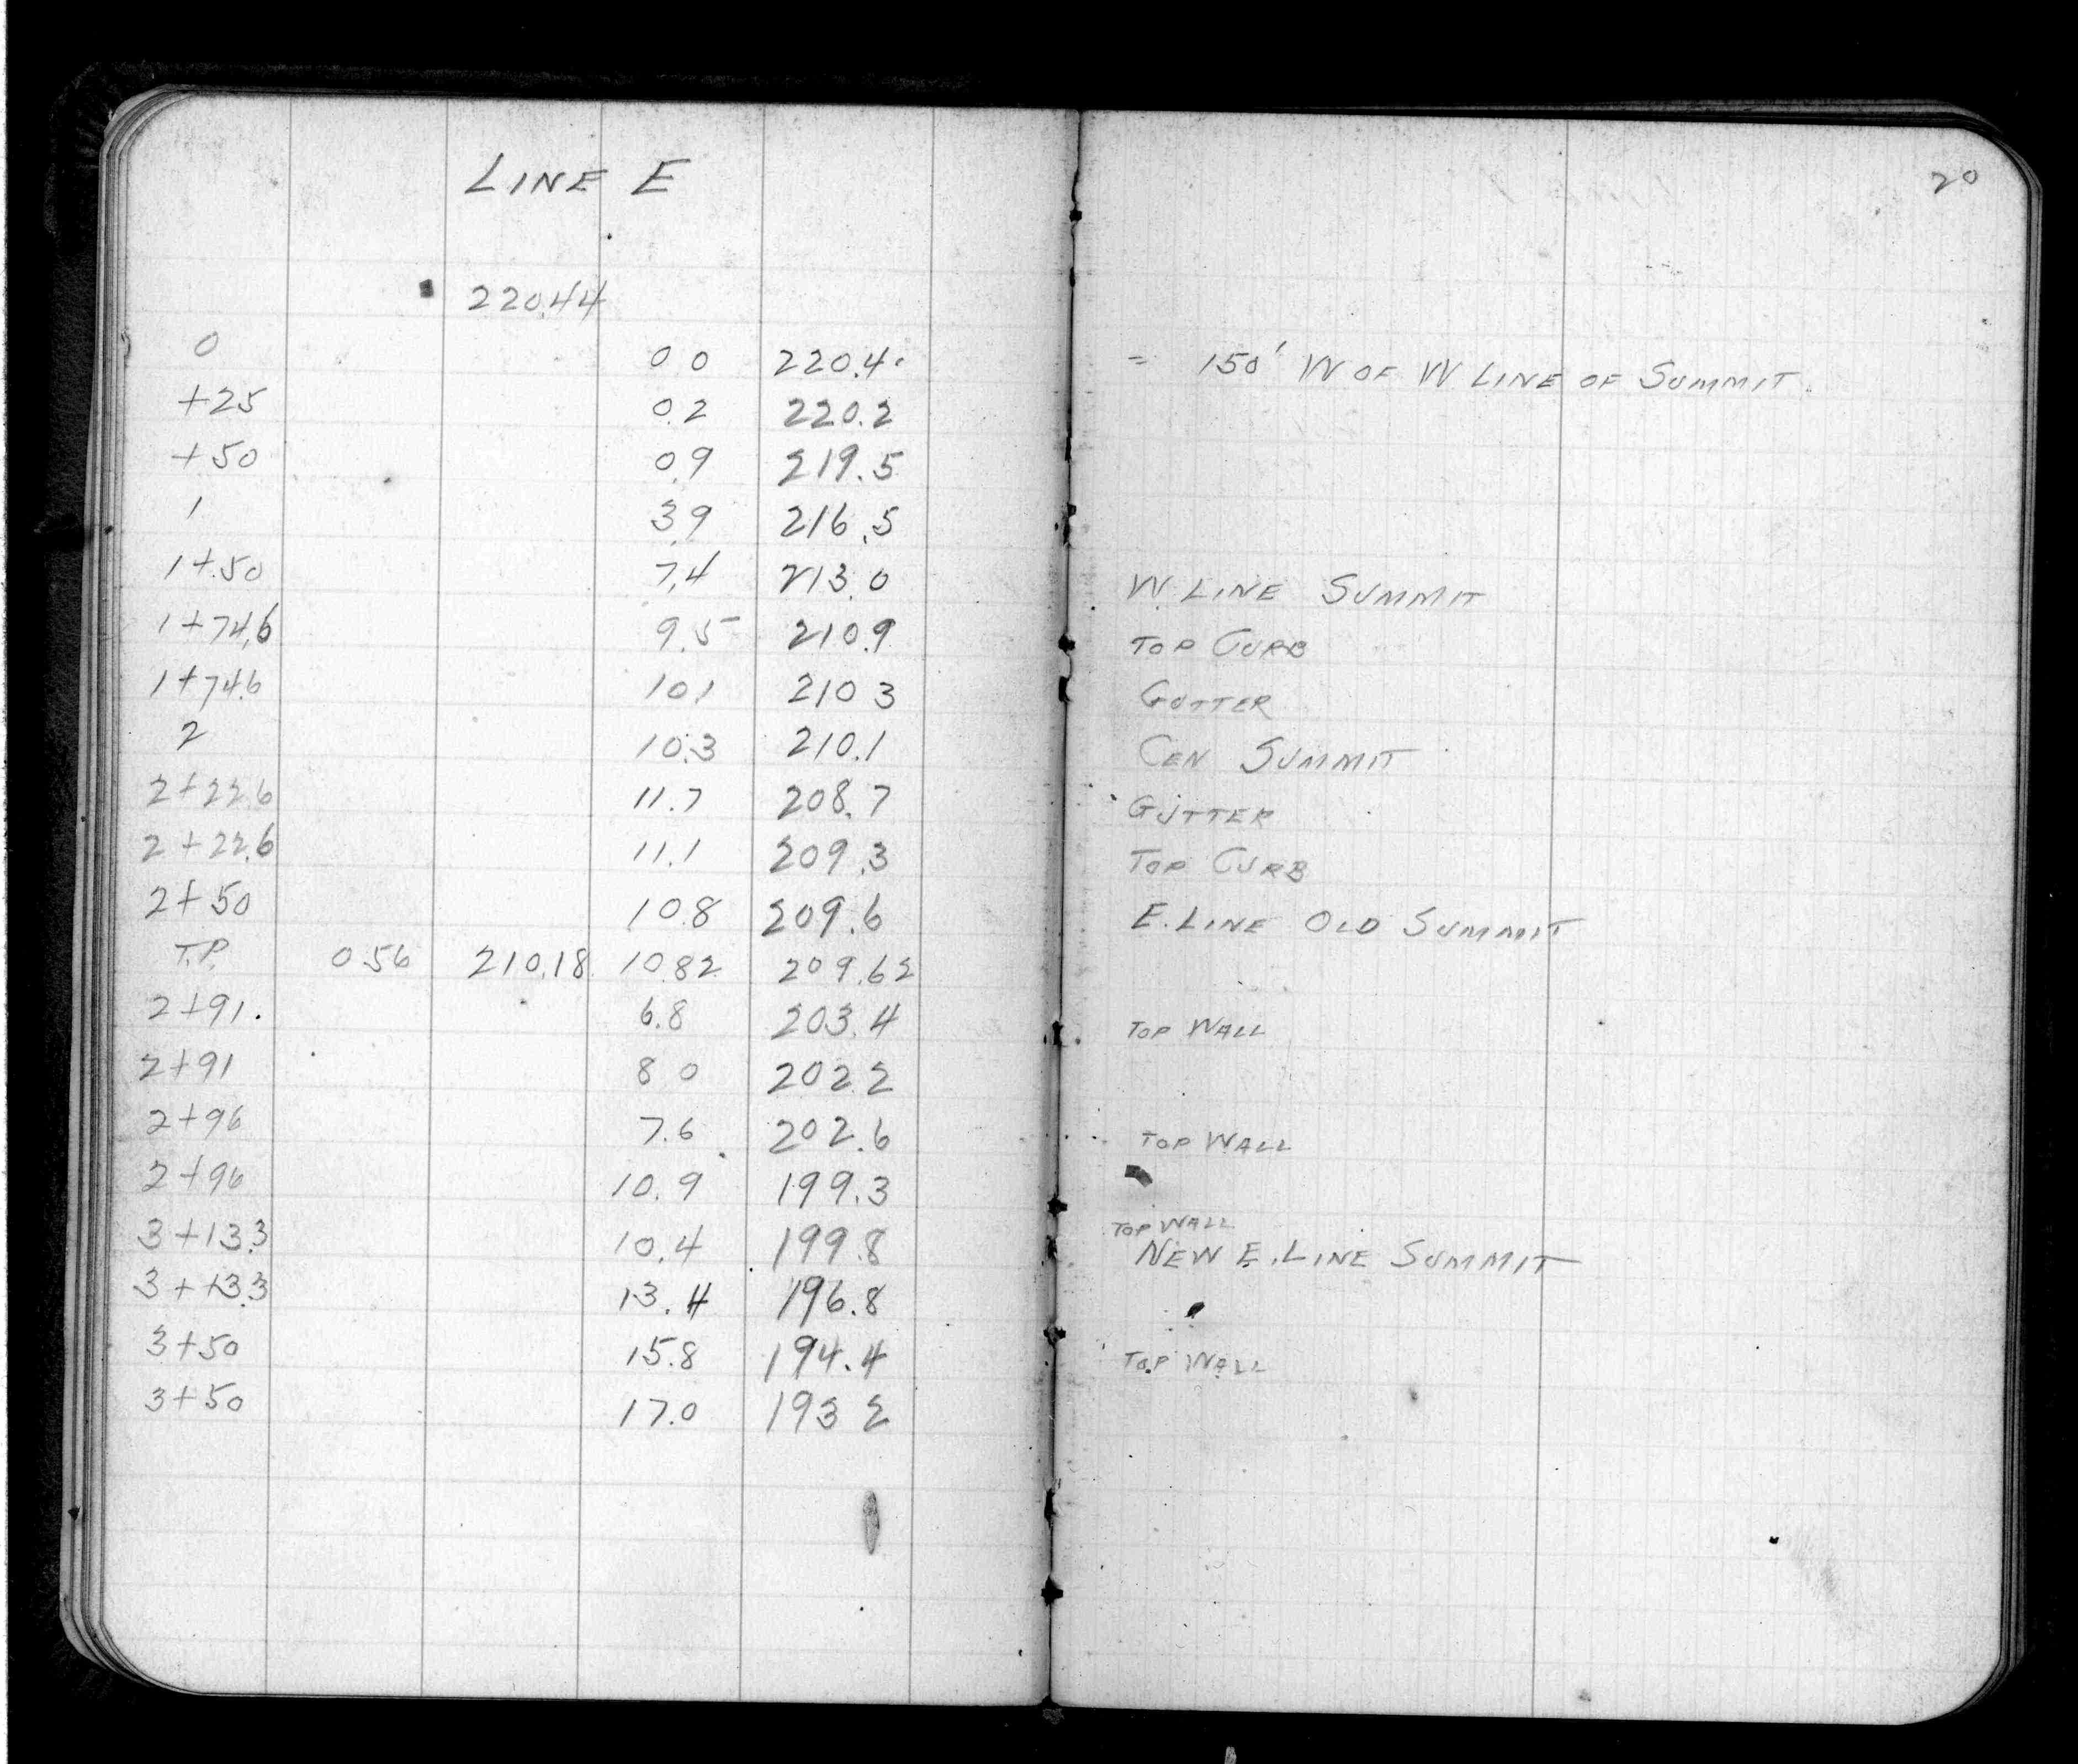 LINE E
20
220.44
0 0.0 220.4 = 150' W OF W LINE OF SUMMIT.
+25 0.2 220.2
+50 0.9 219.5
1 3.9 216.5
1+50 7.4 213.0 W. LINE SUMMIT
1+74.6 9.5 210.9 TOP CURB
1+74.6 10.1 210.3 GUTTER
2 10.3 210.1 CEN SUMMIT
2+22.6 11.7 208.7 GUTTER
2+22.6 11.1 209.3 TOP CURB
2+50 10.8 209.6 E. LINE OLD SUMMIT
T.P. 0.56 210.18 10.82 209.62
2+91. 6.8 203.4 TOP WALL
2+91 8.0 202.2
2+96 7.6 202.6 TOP WALL
2+96 10.9 199.3
TOP WALL
3+13.3 10.4 199.8 NEW E. LINE SUMMIT
3+13.3 13.4 196.8
3+50 15.8 194.4 TOP WALL
3+50 17.0 193.2